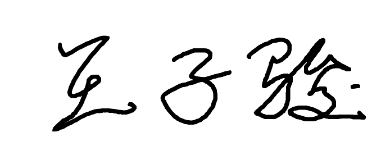 王子骏